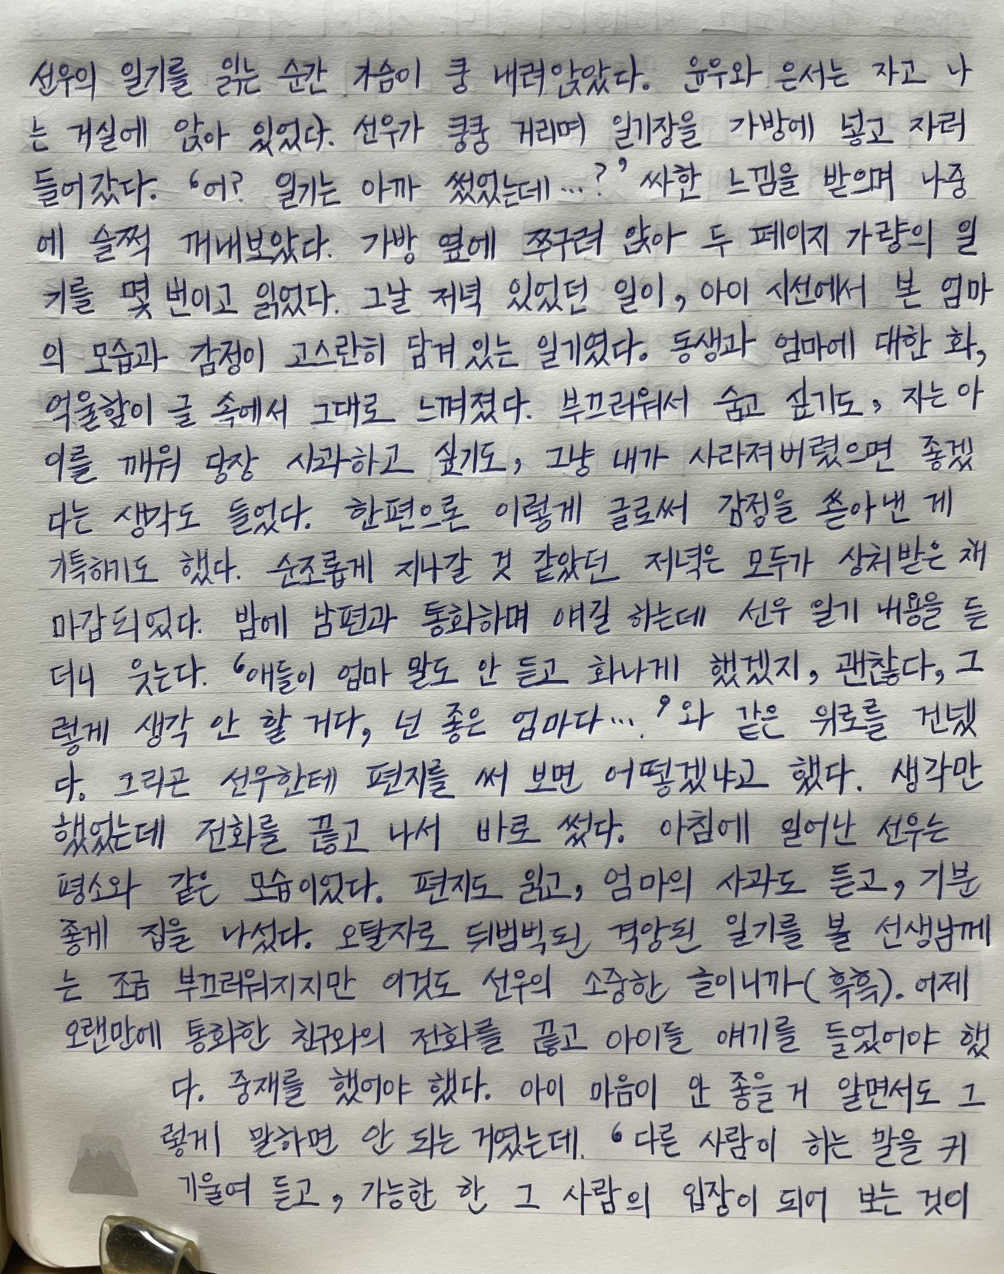 선우의 일기를 읽는 순간 가슴이 쿵 내려앉았다. 윤우와 은서는 자고 나
는 거실에 앉아 있었다. 선우가 쿵쿵 거리며 일기장을 가방에 넣고 자러
들어갔다. '어? 일기는 아까 썼었는데...?' 싸한 느낌을 받으며 나중
에 슬쩍 꺼내보았다. 가방 옆에 쭈구려 앉아 두 페이지 가량의 일
기를 몇 번이고 읽었다. 그날 저녁 있었던 일이, 아이 시선에서 본 엄마
의 모습과 감정이 고스란히 담겨 있는 일기였다. 동생과 엄마에 대한 화,
억울함이 글 속에서 그대로 느껴졌다. 부끄러워서 숨고 싶기도, 자는 아
이를 깨워 당장 사과하고 싶기도, 그냥 내가 사라져버렸으면 좋겠
다는 생각도 들었다. 한편으론 이렇게 글로써 감정을 쏟아낸 게
기특하기도 했다. 순조롭게 지나갈 것 같았던 저녁은 모두가 상처받은 채
마감되었다. 밤에 남편과 통화하며 얘길 하는데 선우 일기 내용을 듣
더니 웃는다. '애들이 엄마 말도 안 듣고 화나게 했겠지, 괜찮다, 그
렇게 생각 안 할 거다, 넌 좋은 엄마다...'와 같은 위로를 건넸
다. 그리곤 선우한테 편지를 써 보면 어떻겠냐고 했다. 생각만
했었는데 전화를 끊고 나서 바로 썼다. 아침에 일어난 선우는
평소와 같은 모습이었다. 편지도 읽고, 엄마의 사과도 듣고, 기분
좋게 집을 나섰다. 오탈자로 뒤범벅된 격앙된 일기를 볼 선생님께
는 조금 부끄러워지지만 이것도 선우의 소중한 글이니까(흑흑). 어제
오랜만에 통화한 친구와의 전화를 끊고 아이들 얘기를 들었어야 했
다. 중재를 했어야 했다. 아이 마음이 안 좋을 거 알면서도 그
렇게 말하면 안 되는 거였는데. '다른 사람이 하는 말을 귀
기울여 듣고, 가능한 한 그 사람의 입장이 되어 보는 것이